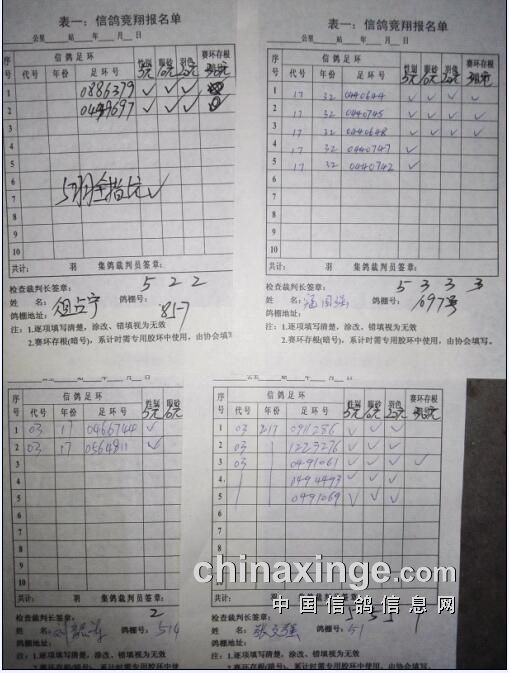 表一：信鸽竞翔报名单
公里 站 年 月 日
序号 信鸽足环 性别 眼砂 羽色 赛环存根
代号 年份 足环号 5元 10元 20元
1 0886379 ✓ ✓ ✓
2 0449697 ✓ ✓ ✓
3
4
5
6
7 5羽全指定 ✓
8
9
10
共计： 羽 集鸽裁判员签章：
检查裁判长签章： 5 2 2
姓 名： 鸽棚号： 817
鸽棚地址：
注：1.逐项填写清楚，涂改、错填视为无效
2.赛环存根(暗号)，累计时需专用胶环中使用，由协会填写
表一：信鸽竞翔报名单
公里 站 年 月 日
序号 信鸽足环 性别 眼砂 羽色 赛环存根
代号 年份 足环号 5元 10元 20元
1 17 32 0440644 ✓ ✓ ✓ ✓
2 17 32 0440745 ✓ ✓ ✓ ✓
3 17 32 0440648 ✓ ✓ ✓ ✓
4 17 32 0440747 ✓
5 17 32 0440742 ✓
6
7
8
9
10
共计： 羽 集鸽裁判员签章：
检查裁判长签章： 5 3 3 3
姓 名： 鸽棚号： 697号
鸽棚地址：
注：1.逐项填写清楚，涂改、错填视为无效
2.赛环存根(暗号)，累计时需专用胶环中使用，由协会填写。
公里 站 年 月 日
序号 信鸽足环 性别 眼砂
代号 年份 足环号 5元 10元
1 03 17 0466744 ✓
2 03 17 0564811 ✓
3
4
5
6
7
8
9
10
共计： 羽 集鸽裁判员签章：
检查裁判长签章： 2
姓 名： 鸽棚号： 514
鸽棚地址：
注：1.逐项填写清楚，涂改、错填视为无效
2.赛环存根(暗号)，累计时需专用胶
公里 站 年 月 日
序号 信鸽足环 性别 眼砂 羽色 赛环存根
代号 年份 足环号 5元 10元 20元
1 03 217 0911286 ✓ ✓ ✓
2 03 1223276 ✓ ✓ ✓
3 03 0491061 ✓ ✓ ✓ ✓
4 0494493 ✓ ✓ ✓
5 0491069 ✓ ✓ ✓
6
7
8
9
10
共计： 羽 集鸽裁判员签章：
检查裁判长签章： 5 5 5 1
姓 名： 张文强 鸽棚号： 51
鸽棚地址：
注：1.逐项填写清楚，涂改、错填视为无效
2.赛环存根(暗号)，累计时需专用胶环中使用，由协会填写
chinaxinge.com
中国信鸽信息网